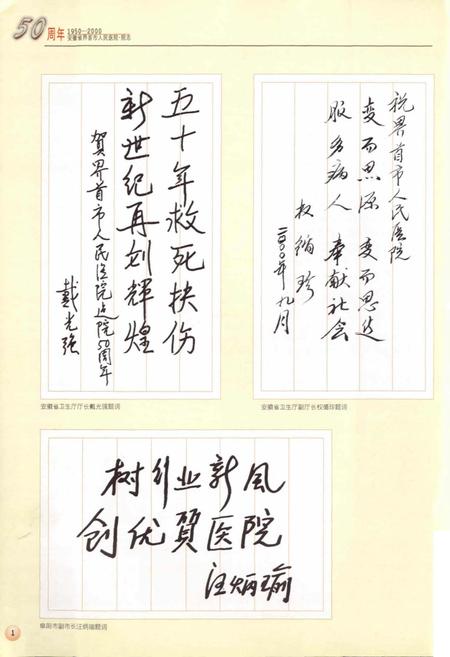 50周年 1950—2000
安徽省界首市人民医院·院志
五十年救死扶伤
新世纪再创辉煌
贺界首市人民医院建院50周年
戴光强
安徽省卫生厅厅长戴光强题词
祝界首市人民医院
变而思源 变而思进
服务病人 奉献社会
权循珍
二000年九月
安徽省卫生厅副厅长权循珍题词
树行业新风
创优質医院
汪炳瑜
阜阳市副市长汪炳瑜题词
1